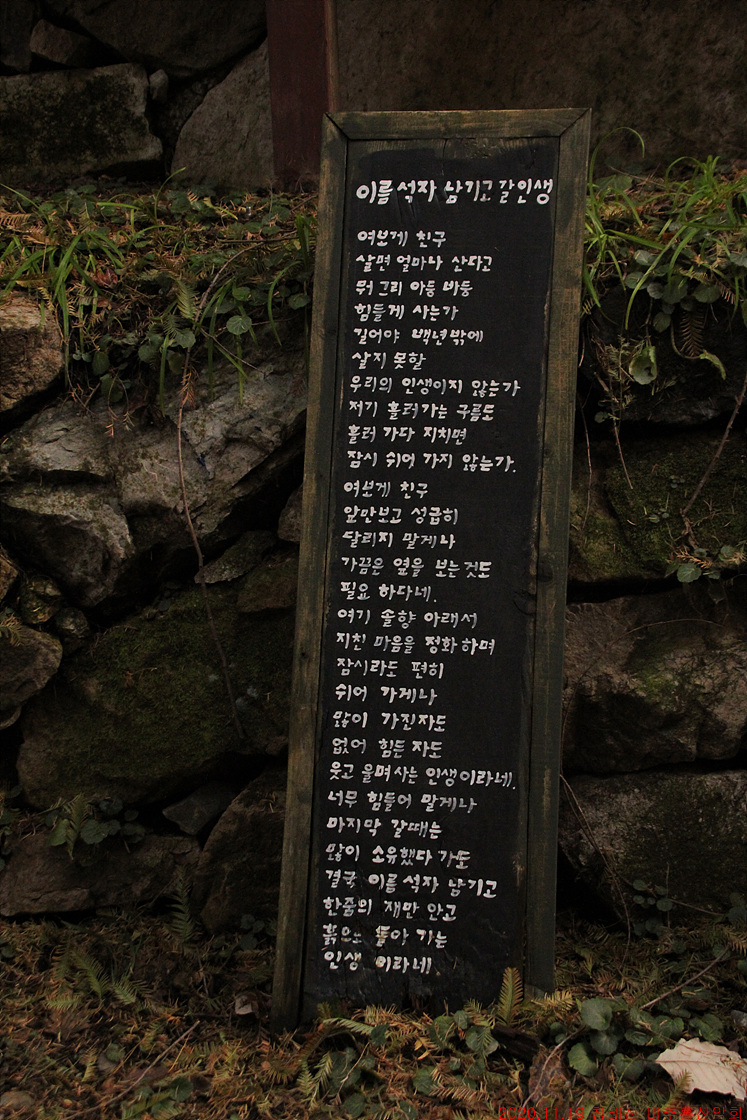 이름 석자 남기고 갈 인생
여보게 친구
살면 얼마나 산다고
뭐 그리 아등 바등
힘들게 사는가
길어야 백년밖에
살지 못할
우리의 인생이지 않는가
저기 흘러가는 구름도
흘러 가다 지치면
잠시 쉬어 가지 않는가.
여보게 친구
앞만보고 성급히
달리지 말게나
가끔은 옆을 보는것도
필요 하다네.
여기 솔향 아래서
지친 마음을 정화하며
잠시라도 편히
쉬어 가게나
많이 가진자도
없어 힘든 자도
웃고 울며사는 인생이라네.
너무 힘들어 말게나
마지막 갈때는
많이 소유했다 가도
결국 이름 석자 남기고
한줌의 재만 안고
흙으로 돌아 가는
인생 이라네.
2020.11.12